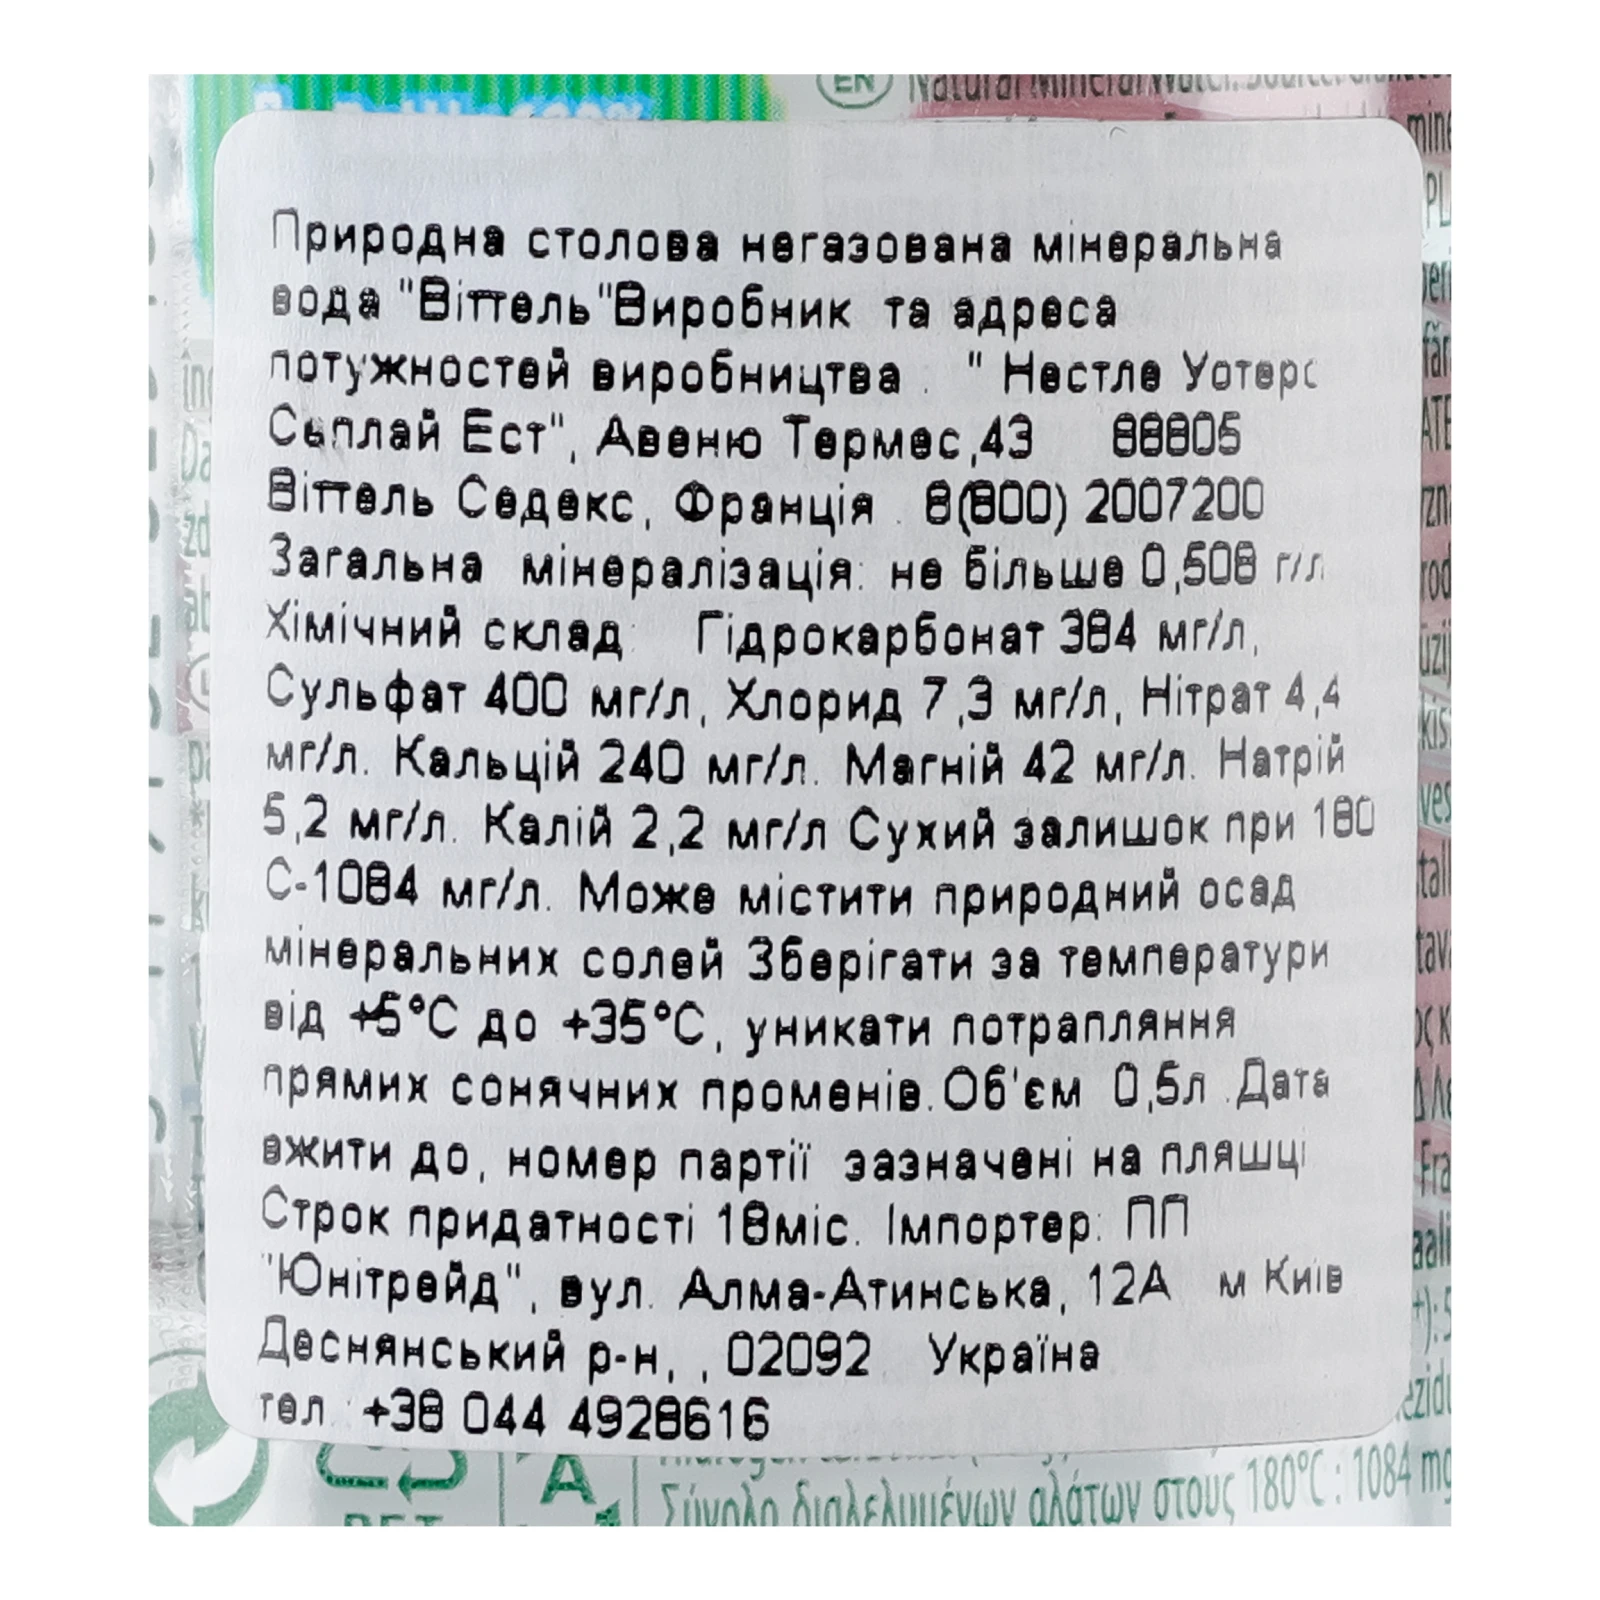 EN Natural Mineral Water.
Природна столова негазована мінеральна
вода "Віттель"Виробник та адреса
потужностей виробництва : " Нестле Уотерс
Сьплай Ест", Авеню Термес,43 88805
Віттель Седекс, Франція . 8(800) 2007200
Загальна мінералізація: не більше 0,508 г/л
Хімічний склад: Гідрокарбонат 384 мг/л,
Сульфат 400 мг/л, Хлорид 7,3 мг/л, Нітрат 4,4
мг/л. Кальцій 240 мг/л. Магній 42 мг/л. Натрій
5,2 мг/л. Калій 2,2 мг/л Сухий залишок при 180
С-1084 мг/л. Може містити природний осад
мінеральних солей Зберігати за температури
від +5°С до +35°С, уникати потрапляння
прямих сонячних променів.Об'єм 0,5л .Дата
вжити до, номер партії зазначені на пляшці
Строк придатності 18міс. Імпортер: ПП
"Юнітрейд", вул. Алма-Атинська, 12А м Київ
Деснянський р-н, , 02092 Україна
тел .: +38 044 4928616
A
Σύνολο διαλελυμένων αλάτων στους 180°C : 1084 mg